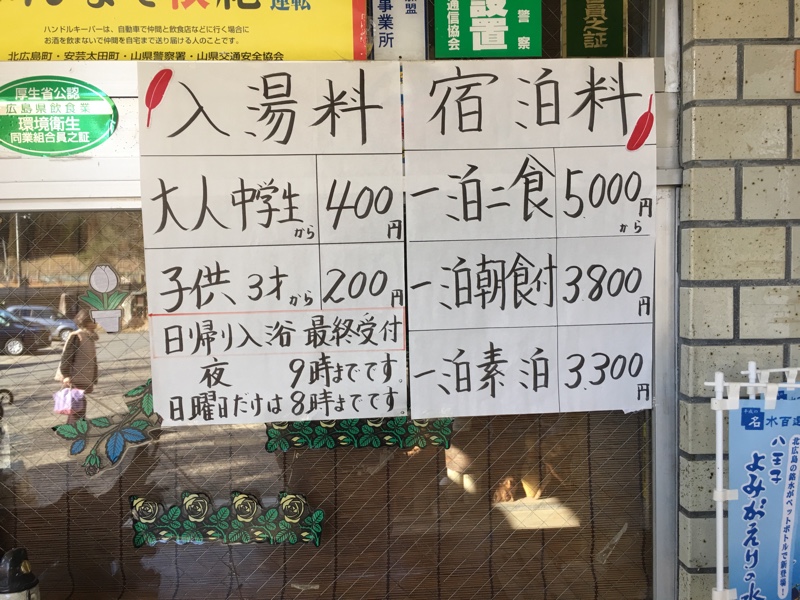 運転
ハンドルキーパーは、自動車で仲間と飲食店などに行く場合に
お酒を飲まないで仲間を自宅まで送り届ける人のことです。
北広島町・安芸太田町・山県警察署・山県交通安全協会
事業所
連盟
警察
通信協会
設置
員之証
厚生省公認
広島県飲食業
環境衛生
同業組合員之証
入湯料
大人 中学生から 400円
子供 3才から 200円
日帰り入浴 最終受付
夜 9時までです。
日曜日だけは8時までです
宿泊料
一泊二食 5000円から
一泊朝食付 3.800円
一泊素泊 3.300円
名水百選
北広島の銘水がペットボトルで新登場!
八王子
よみがえりの水